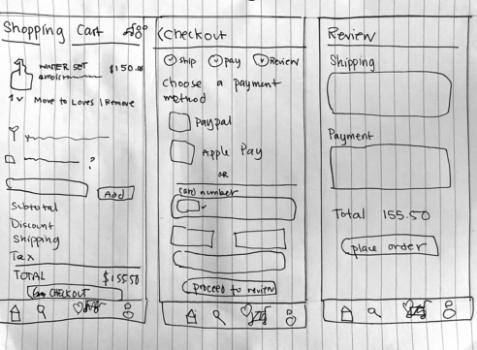 Shopping Cart
WATER SET
$150.00
1 Move to Loves | Remove
?
Add
Subtotal
Discount
Shipping
Tax
TOTAL $155.50
CHECKOUT
<Checkout
Ship Pay Review
Choose a payment
method
Paypal
Apple Pay
OR
Card number
proceed to review
Review
Shipping
Payment
Total 155.50
place order